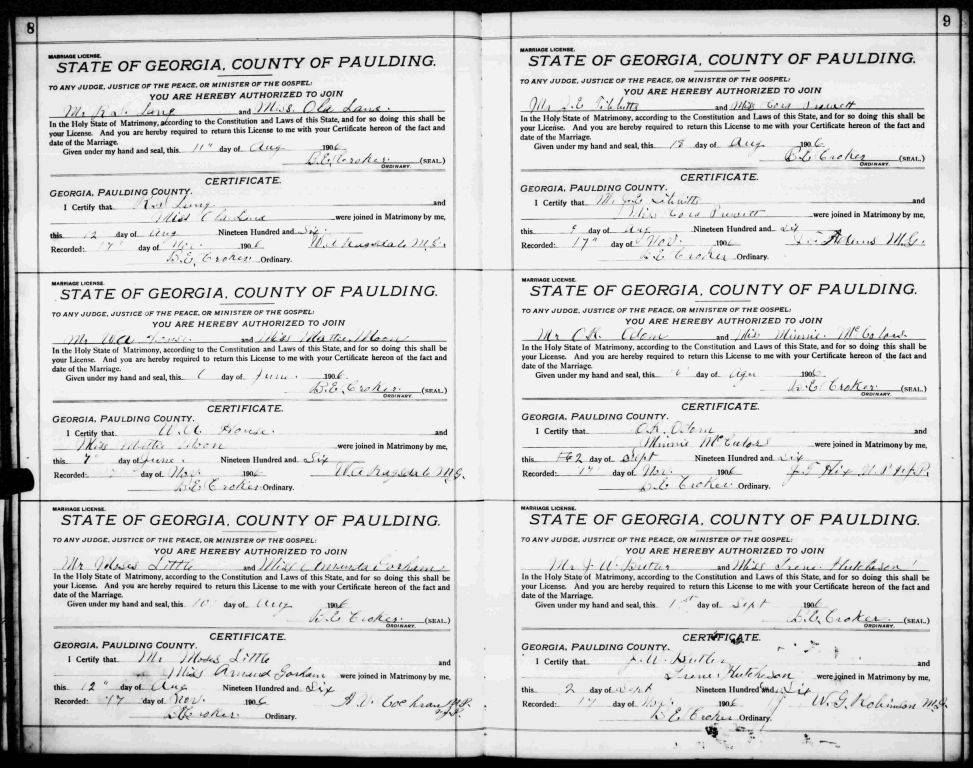 8
MARRIAGE LICENSE.
STATE OF GEORGIA, COUNTY OF PAULDING.
TO ANY JUDGE, JUSTICE OF THE PEACE, OR MINISTER OF THE GOSPEL:
YOU ARE HEREBY AUTHORIZED TO JOIN
Mr and Miss Ola
In the Holy State of Matrimony, according to the Constitution and Laws of this State, and for so doing this shall be
your License. And you are hereby required to return this License to me with your Certificate hereon of the fact and
date of the Marriage.
Given under my hand and seal, this 11th day of Aug 1906
B.E. Croker (SEAL.)
ORDINARY.
CERTIFICATE.
GEORGIA, PAULDING COUNTY.
I Certify that and
Miss Ola were joined in Matrimony by me,
this 12 day of Aug Nineteen Hundred and Six
Recorded: 17" day of Nov. 1906 Ragsdale M.G.
B.E. Croker Ordinary.
MARRIAGE LICENSE.
STATE OF GEORGIA, COUNTY OF PAULDING.
TO ANY JUDGE, JUSTICE OF THE PEACE, OR MINISTER OF THE GOSPEL:
YOU ARE HEREBY AUTHORIZED TO JOIN
Mr W.A. House and Miss Mattie Moon
In the Holy State of Matrimony, according to the Constitution and Laws of this State, and for so doing this shall be
your License. And you are hereby required to return this License to me with your Certificate hereon of the fact and
date of the Marriage.
Given under my hand and seal, this day of June 1906
B.E. Croker (SEAL.)
ORDINARY.
CERTIFICATE.
GEORGIA, PAULDING COUNTY.
I Certify that W.A. House and
Miss Mattie Moon were joined in Matrimony by me,
this 7 day of June Nineteen Hundred and Six
Recorded: day of Nov. 1906 Ragsdale M.G.
B.E. Croker Ordinary.
MARRIAGE LICENSE.
STATE OF GEORGIA, COUNTY OF PAULDING.
TO ANY JUDGE, JUSTICE OF THE PEACE, OR MINISTER OF THE GOSPEL:
YOU ARE HEREBY AUTHORIZED TO JOIN
Mr Moses Little and Miss Gorham
In the Holy State of Matrimony, according to the Constitution and Laws of this State, and for so doing this shall be
your License. And you are hereby required to return this License to me with your Certificate hereon of the fact and
date of the Marriage.
Given under my hand and seal, this 10 day of Aug 1906
B.E. Croker (SEAL.)
ORDINARY.
CERTIFICATE.
GEORGIA, PAULDING COUNTY.
I Certify that Mr Moses Little and
Miss Gorham were joined in Matrimony by me,
this 12" day of Aug Nineteen Hundred and Six
Recorded: 17 day of Nov. 1906 Cochran
Croker Ordinary.
9
MARRIAGE LICENSE.
STATE OF GEORGIA, COUNTY OF PAULDING.
TO ANY JUDGE, JUSTICE OF THE PEACE, OR MINISTER OF THE GOSPEL:
YOU ARE HEREBY AUTHORIZED TO JOIN
Mr J.E. and Miss Cora Pruett
In the Holy State of Matrimony, according to the Constitution and Laws of this State, and for so doing this shall be
your License. And you are hereby required to return this License to me with your Certificate hereon of the fact and
date of the Marriage.
Given under my hand and seal, this 18 day of Aug 1906
B.E. Croker (SEAL.)
ORDINARY.
CERTIFICATE.
GEORGIA, PAULDING COUNTY.
I Certify that Mr J.E. and
Miss Cora Pruett were joined in Matrimony by me,
this 9 day of Aug Nineteen Hundred and Six
Recorded: 17" day of Nov. 1906 M.G.
B.E. Croker Ordinary.
MARRIAGE LICENSE.
STATE OF GEORGIA, COUNTY OF PAULDING.
TO ANY JUDGE, JUSTICE OF THE PEACE, OR MINISTER OF THE GOSPEL:
YOU ARE HEREBY AUTHORIZED TO JOIN
Mr O.R. Odom and Miss Minnie
In the Holy State of Matrimony, according to the Constitution and Laws of this State, and for so doing this shall be
your License. And you are hereby required to return this License to me with your Certificate hereon of the fact and
date of the Marriage.
Given under my hand and seal, this day of 1906
B.E. Croker (SEAL.)
ORDINARY.
CERTIFICATE.
GEORGIA, PAULDING COUNTY.
I Certify that O.R. Odom and
Minnie were joined in Matrimony by me,
this 2 day of Sept Nineteen Hundred and Six
Recorded: 17 day of Nov. 1906 J.T. Hix
B.E. Croker Ordinary.
MARRIAGE LICENSE.
STATE OF GEORGIA, COUNTY OF PAULDING.
TO ANY JUDGE, JUSTICE OF THE PEACE, OR MINISTER OF THE GOSPEL:
YOU ARE HEREBY AUTHORIZED TO JOIN
Mr J.W. Butler and Miss Irene Hutcheson
In the Holy State of Matrimony, according to the Constitution and Laws of this State, and for so doing this shall be
your License. And you are hereby required to return this License to me with your Certificate hereon of the fact and
date of the Marriage.
Given under my hand and seal, this 1st day of Sept 1906
B.E. Croker (SEAL.)
ORDINARY.
CERTIFICATE.
GEORGIA, PAULDING COUNTY.
I Certify that J.W. Butler and
Irene Hutcheson were joined in Matrimony by me,
this 2 day of Sept Nineteen Hundred and Six
Recorded: 17 day of Nov. 1906 W.G. Robinson M.G.
B.E. Croker Ordinary.